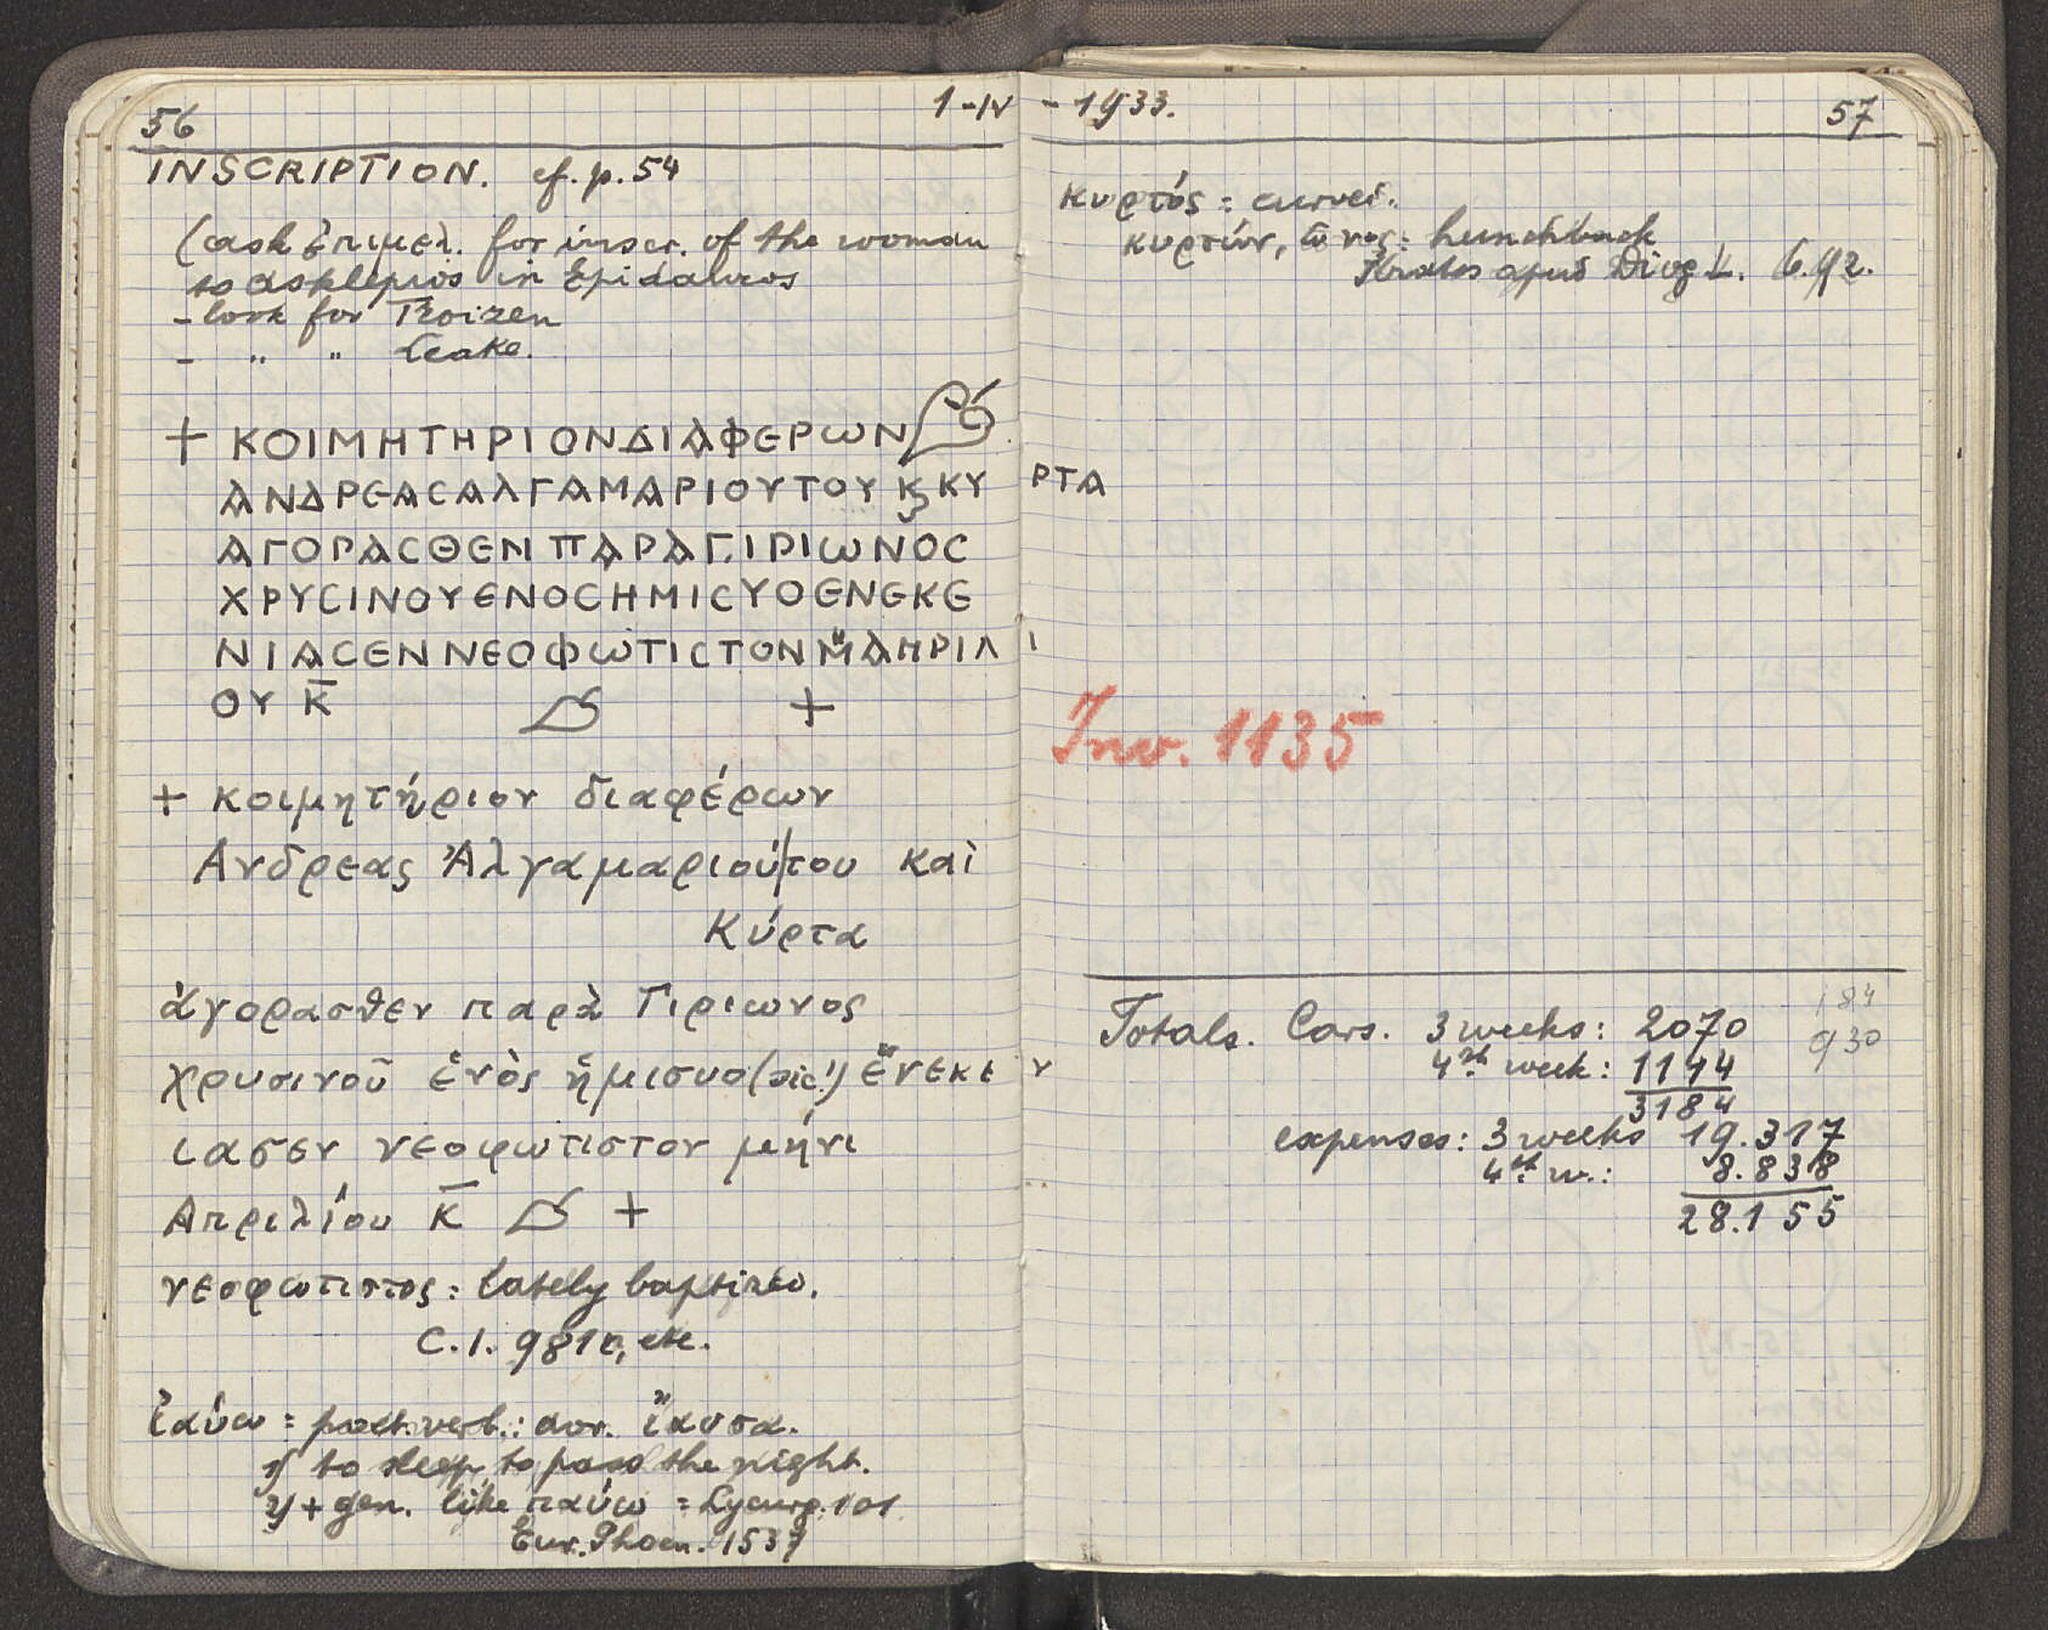 56
INSCRIPTION. cf. p. 54
(ask ἐπιμελ. for inscr. of the woman
to asklepios in Epidauros
- look for Troizen
- " " Leake.
+ ΚΟΙΜΗΤΗΡΙΟΝΔΙΑΦΕΡΩΝ
ΑΝΔΡΕΑСΑΛΓΑΜΑΡΙΟΥΤΟΥ Κ ΚΥΡΤΑ
ΑΓΟΡΑСΘΕΝΠΑΡΑΓΙΡΙΩΝΟС
ΧΡΥСΙΝΟΥΕΝΟСΗΜΙСΥΟΕΝΕΚΕ
ΝΙΑСΕΝΝΕΟΦΩΤΙСΤΟΝΜΑΠΡΙΛΙ
ΟΥ Κ̅ +
+ κοιμητήριον διαφέρων
Ανδρεας Ἀλγαμαριού/του καὶ
Κύρτα
ἀγορασθεν παρὰ Γιριωνος
χρυσινοῦ ἑνὸς ἥμισυο (sic!) ἕνεκεν
ιασεν νεοφωτιστον μηνι
Απριλίου Κ̅ +
νεοφωτιστος = lately baptized.
C.I. 981c, etc.
ἰαύω = poet. verb.: aor. ἴαυσα.
1) to sleep, to pass the night.
2) + gen. like παύω = Lycurg. 101
Eur. Phoen. 1537
1-IV - 1933.
57
κυρτός = curved.
κυρτών, ῶνος: hunchback
Krates apud Diog L. 6.92.
Inv. 1135
184
930
Totals. Cars. 3 weeks: 2070
4th week: 1114
3184
expenses: 3 weeks 19.317
4th w.: 8.838
28.155